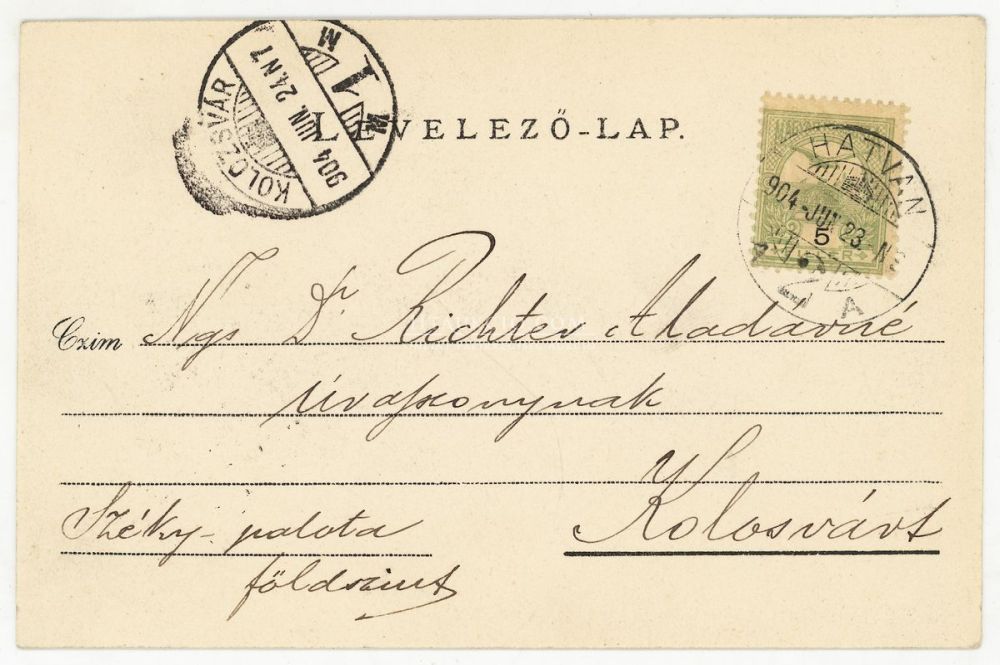 LEVELEZŐ-LAP.
KOLOZSVÁR
904 JUN. 24 N7
M 1 M
HATVAN
904-JUN 23-N
A
5
Czim Ngs Dr Richter Aladárné
úrasszonynak
Kolosvárt
Széky-palota
földszint